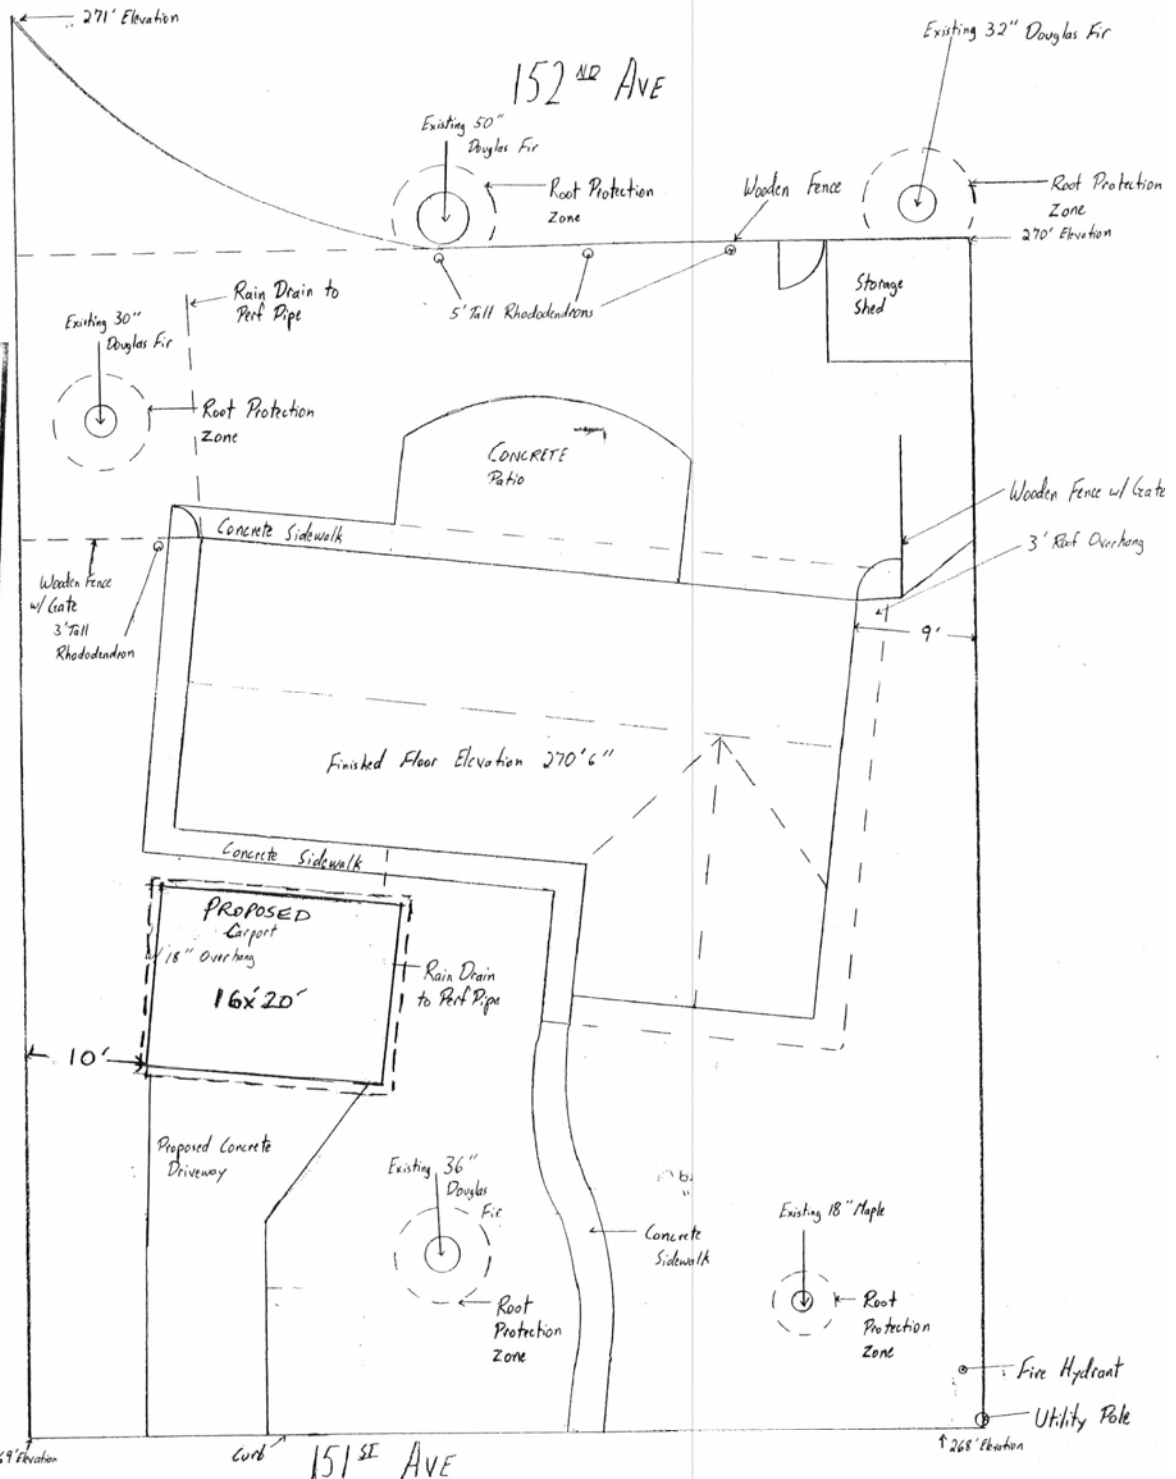 271' Elevation
Existing 32" Douglas Fir
152ND AVE
Existing 50"
Douglas Fir
Root Protection
Zone
Wooden Fence
Root Protection
Zone
270' Elevation
Rain Drain to
Perf Pipe
5' Tall Rhododendrons
Storage
Shed
Existing 30"
Douglas Fir
Root Protection
Zone
CONCRETE
Patio
Wooden Fence w/ Gate
Concrete Sidewalk
3' Roof Overhang
Wooden Fence
w/ Gate
3' Tall
Rhododendron
9'
Finished Floor Elevation 270'6"
Concrete Sidewalk
PROPOSED
Carport
w/ 18" Overhang
16'x20'
Rain Drain
to Perf Pipe
10'
Proposed Concrete
Driveway
Existing 36"
Douglas
Fir
Root
Protection
Zone
Concrete
Sidewalk
Existing 18" Maple
Root
Protection
Zone
Fire Hydrant
Utility Pole
69' Elevation
Curb
151ST AVE
268' Elevation